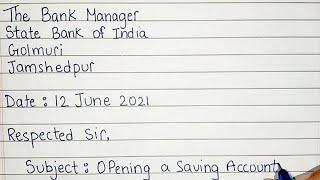 The Bank Manager
State Bank of India
Golmuri
Jamshedpur
Date : 12 June 2021
Respected Sir,
Subject : Opening a Saving Account